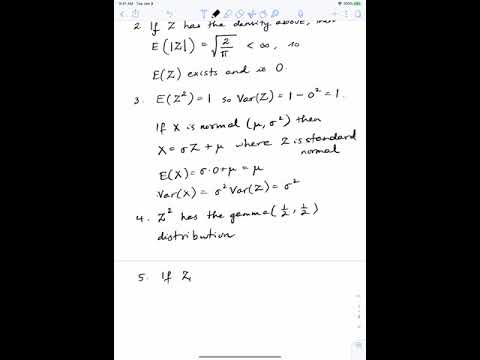 9:41 AM Tue Jan 9
2. If Z has the density above, then
E(|Z|) = √(2/π) < ∞, so
E(Z) exists and is 0.
3. E(Z²) = 1 so Var(Z) = 1 − 0² = 1.
If X is normal (μ, σ²) then
X = σZ + μ where Z is standard normal
E(X) = σ·0 + μ = μ
Var(X) = σ² Var(Z) = σ²
4. Z² has the gamma(1/2, 1/2)
distribution
5. If Z